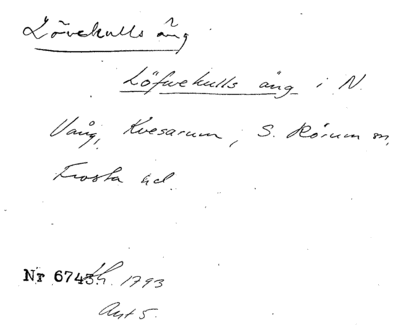 Lövekulls äng
Löfwekulls äng i N.
Vång, Kvesarum, S. Rörum sn,
Frosta hd.
Nr 6743 1793
Akt 5.